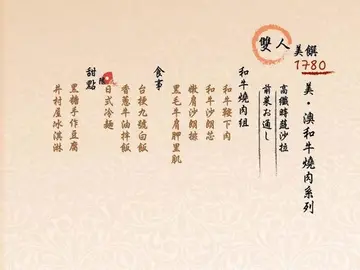 雙人
美饌
1780
美・澳和牛燒肉系列
高纖時蔬沙拉
前菜お通し
和牛燒肉組
和牛鞍下肉
和牛沙朗芯
嫩肩沙朗捲
黑毛牛肩胛里肌
食事
台梗九號白飯
香蔥牛油拌飯
日式冷麵
甜點
黑糖手作豆腐
井村屋冰淇淋